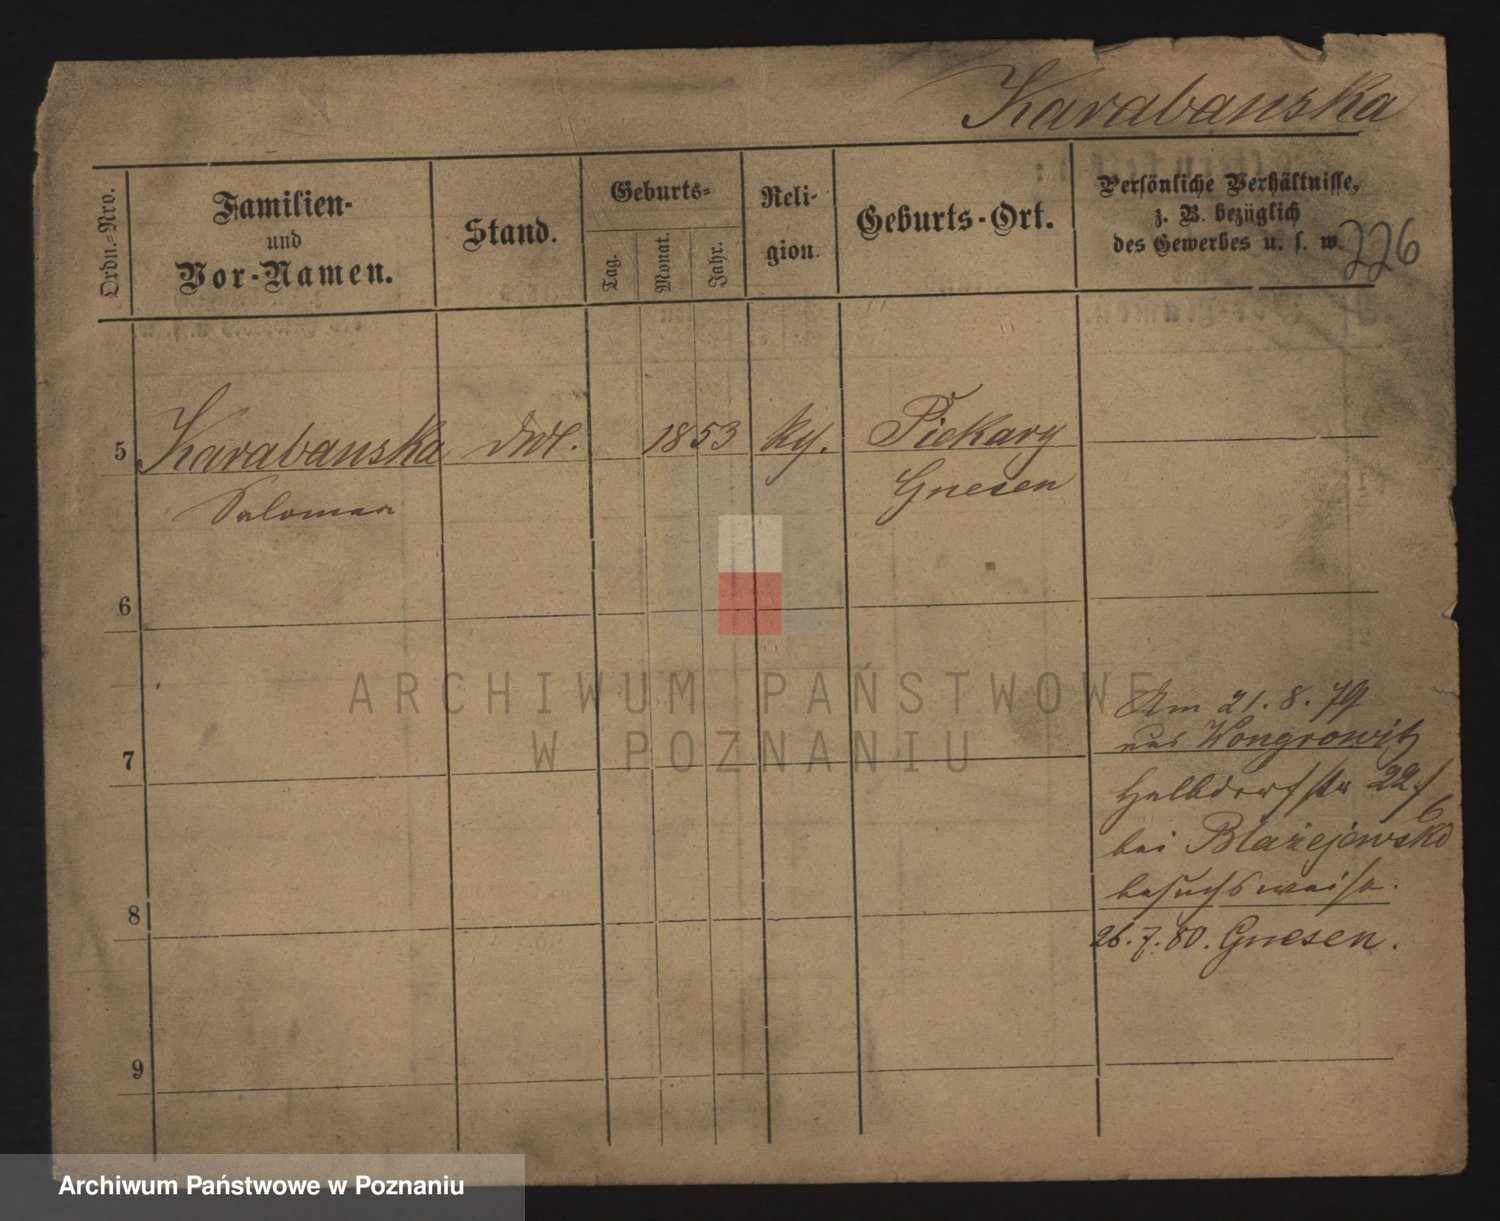 Karabanska
Ordn.-Nro.
Familien-
und
Vor-Namen.
Stand.
Geburts-
Tag.
Monat.
Jahr.
Reli-
gion.
Geburts-Ort.
Persönliche Verhältnisse,
z. B. bezüglich
des Gewerbes u. s. w.
226
5 Karabanska 1853 Piekary
Salomea Gnesen
6
Am 21.8.79
7 aus Wongrowitz
Halbdorfstr 22
bei Błażejewski
8 besuchsweise.
26.7.80. Gnesen.
9
ARCHIWUM PAŃSTWOWE
W POZNANIU
Archiwum Państwowe w Poznaniu